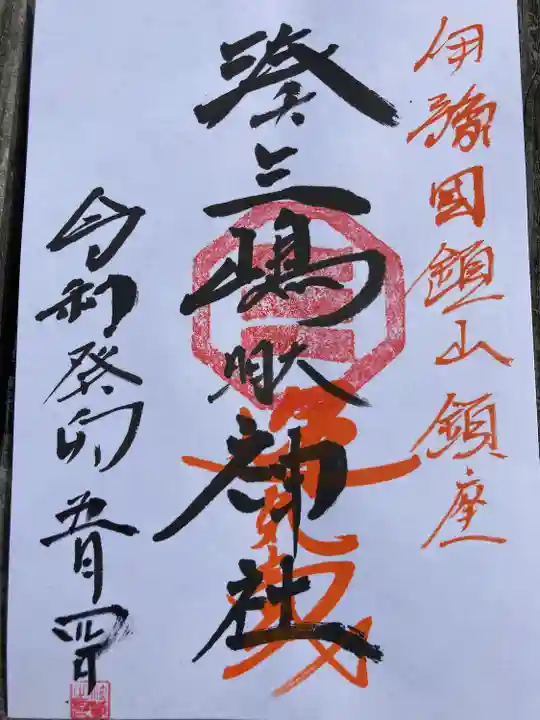 伊豫國鎮山鎮座
湊三嶋大明神社
令和癸卯五月四日